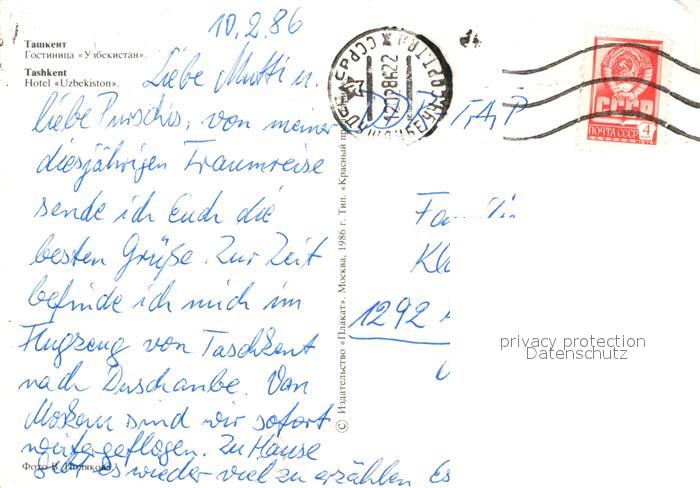 10.2.86
Ташкент
Гостиница «Узбекистан».
Tashkent
Hotel «Uzbekiston».
Liebe Mutti u.
liebe Purschis, von meiner
diesjährigen Traumreise
sende ich Euch die
besten Grüße. Zur Zeit
befinde ich mich im
Flugzeug von Taschkent
nach Duschanbe. Von
Moskau sind wir sofort
weitergeflogen. Zu Hause
gibt es wieder viel zu erzählen Es
Фото В. Полякова
© Издательство «Плакат». Москва, 1986 г. Тип. «Красный
СССР
ПОЧТА СССР 4
1292
privacy protection
Datenschutz